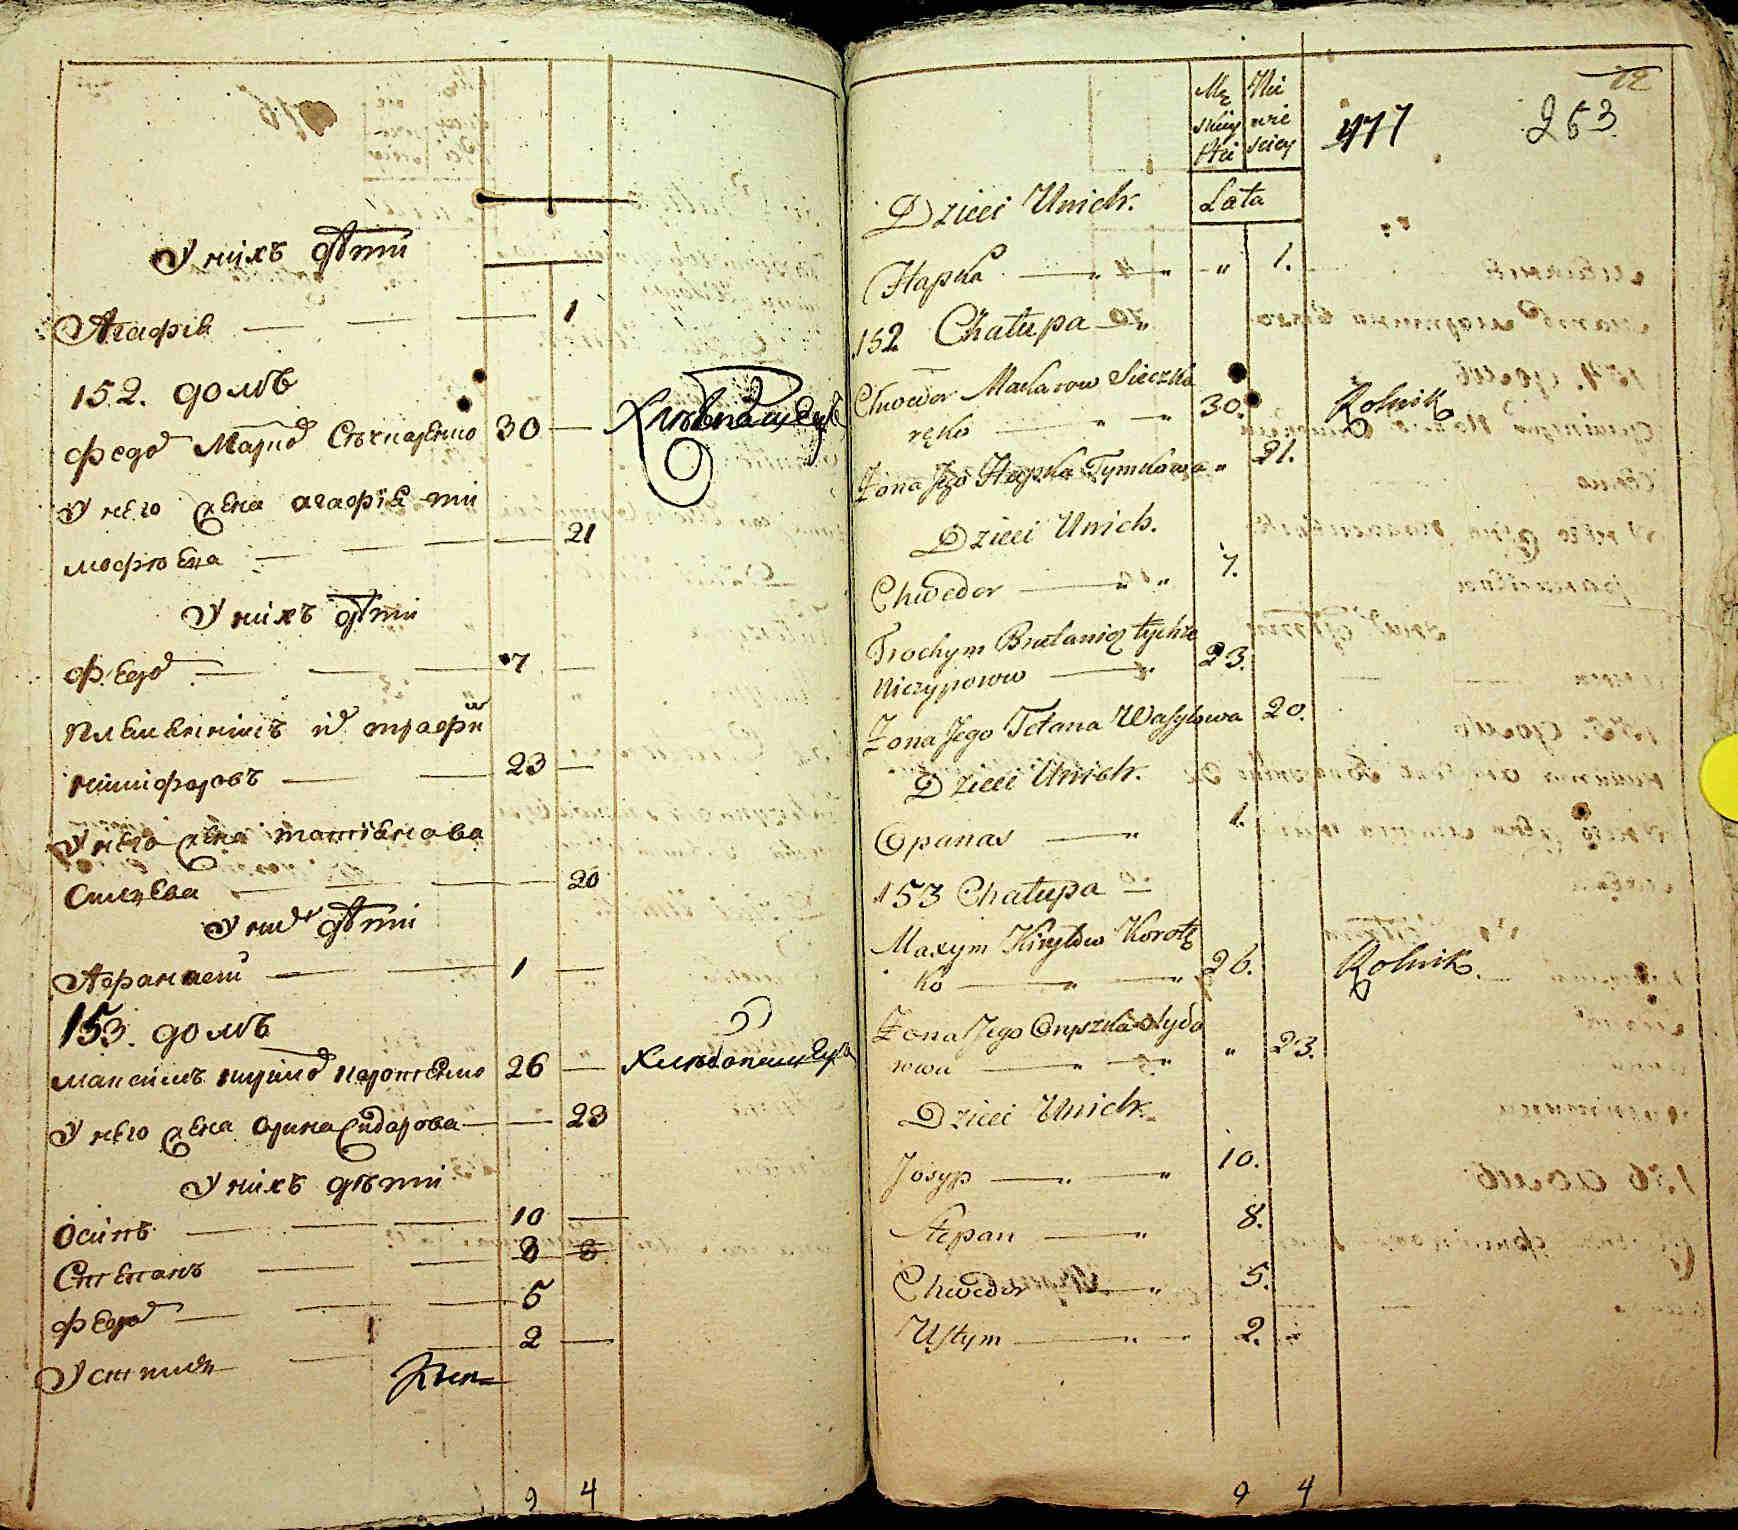 У нихъ дѣти
Агафія — — — 1
152. домъ
Федо᷃ Маркд Сѣчкаренко 30 — Хлѣбопашецъ
У него жена агафія ти
мофѣева — — — 21
У нихъ дѣти
Федо᷃ — — 7 —
Племенникъ их трофи
никифоровъ — — 23 —
У него жена татіянава
Силева — — — 20
У них дѣти
Афанасій — — 1 —
153. домъ
Максимъ кирило Коротченко 26 — Хлѣбопашецъ
У него жена Орина Сидорова — — 23
У нихъ дѣти
Осипъ — — — 10 —
Степанъ — — 8
Федо᷃ — — — 5
Устим — — 2 —
9 4
Mę Nie
skiiy wie
Płci sciey
477 263
Dzieci Unich. Lata
Hapka — „ — „ „ 1.
152 Chałupa
Chwedor Makarow Sieczka
ręko — „ — „ 30. Rolnik
Żona Jego Hapka Tymchowa „ 21.
Dzieci Unich.
Chwedor — „ „ 7.
Trochym Bratanicz tychże
Niczyporow — „ 23.
Żona Jego Tetana Wasylowa 20.
Dzieci Unich.
Opanas — „ 1.
153 Chałupa
Maxym Kiryłow Korotc
ko — „ — „ 26. Rolnik.
Żona Jego Oryszka Sydo
rowa — „ — „ „ 23.
Dzieci Unich
Josyp — „ — „ 10.
Stepan — „ 8.
Chwedor — „ 5.
Ustym — „ — „ 2. „
9 4